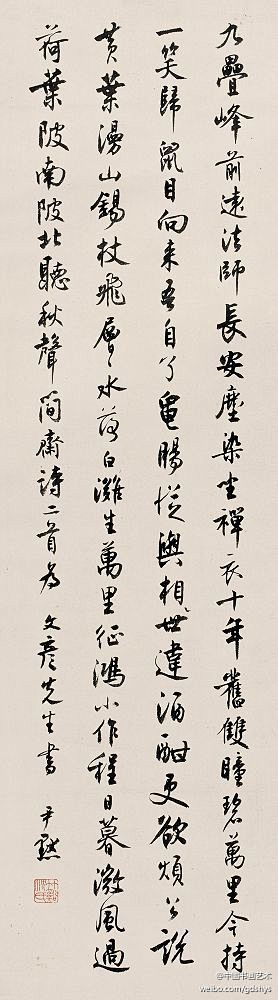 九疊峰前遠法師長安塵染坐禪衣十年舊雙瞳碧萬里今持
一笑歸鼠目向来吾自了龜腸從與相世違酒酣更欲煩公說
黄葉漫山錫杖飛層々水落白灘生萬里征鴻小作程日暮微風過
荷葉陂南陂北聽秋聲簡齋詩二首為 文彥先生書 尹默
@中国书画艺术
weibo.com/gdshys